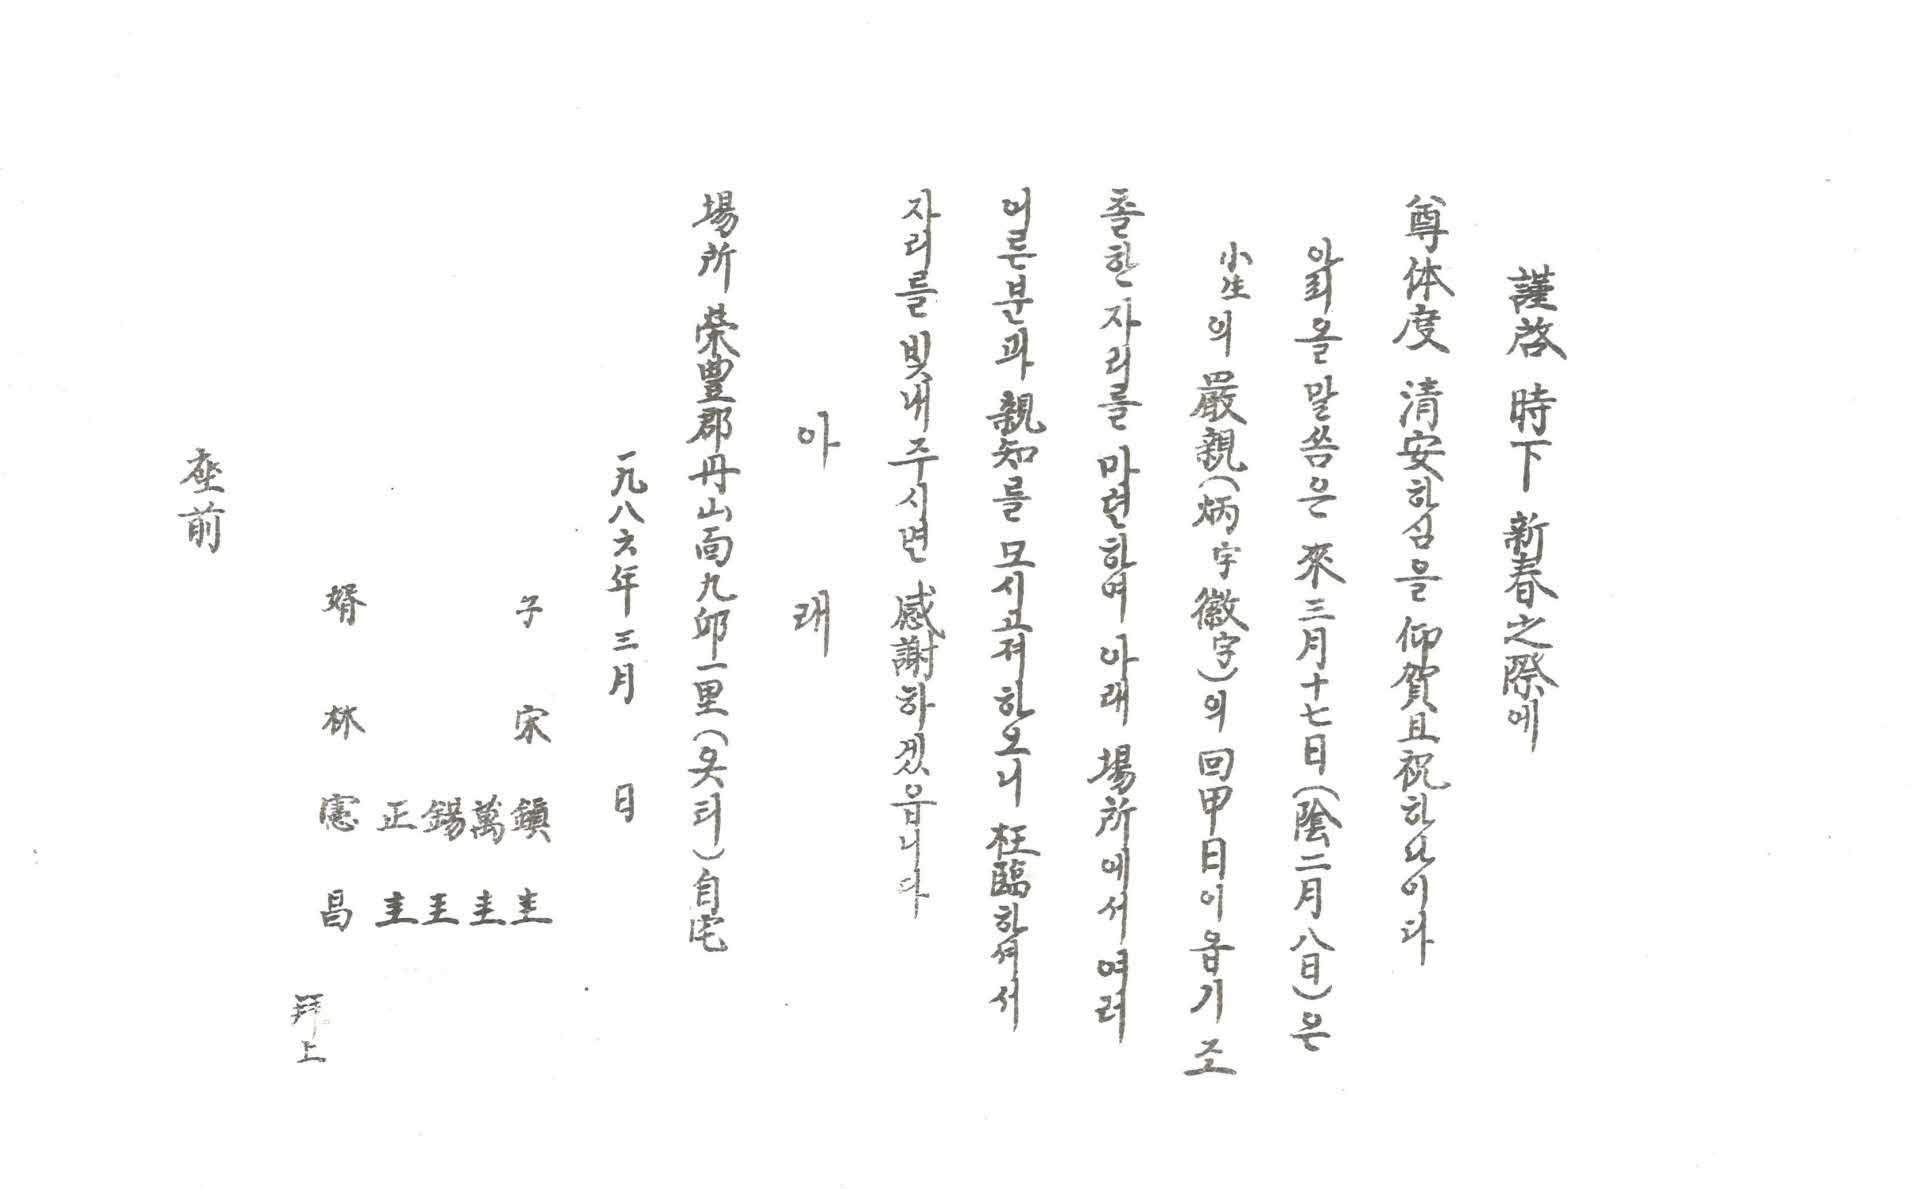 謹啓 時下 新春之際에
尊体度 清安하심을 仰賀且祝하나이다
아뢰올 말씀은 來三月十七日(陰二月八日)은
小生의 嚴親(炳字 徽字)의 回甲日이옵기 조
촐한 자리를 마련하여 아래 場所에서 여러
어른분과 親知를 모시고저 하오니 枉臨하셔서
자리를 빛내 주시면 感謝하겠읍니다
아 래
場所 榮豊郡 丹山面 九邱一里(옷티) 自宅
一九八六年 三月 日
子 宋 鎭 圭
萬 圭
錫 圭
正 圭
婿 林 憲 昌
拜上
座前